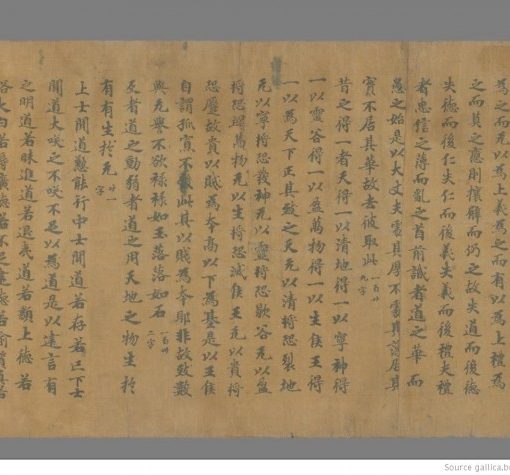 為之而无以為上義為之而有以為上禮為
之而莫之應則攘臂而仍之故失道而後德
失德而後仁失仁而後義失義而後禮夫禮
者忠信之薄而亂之首前識者道之華而
愚之始是以大丈夫處其厚不處其薄居其
實不居其華故去彼取此 一百廿九字
昔之得一者天得一以清地得一以寧神得
一以靈谷得一以盈萬物得一以生侯王得
一以為天下正其致之天无以清將恐裂地
无以寧將恐發神无以靈將恐歇谷无以盈
將恐竭萬物无以生將恐滅侯王无以貴將
恐蹷故貴以賤為本高以下為基是以王侯
自謂孤寡不穀此其以賤為本耶非故致數
與无譽不欲祿祿如玉落落如石 一百卅二字
反者道之動弱者道之用天地之物生於
有有生於无 廿一字
上士聞道懃能行中士聞道若存若亡下士
聞道大咲之不咲不足以為道是以建言有
之明道若昧進道若退夷道若類上德若
谷大白若辱廣德若不足建德若偷質真若
Source gallica.b